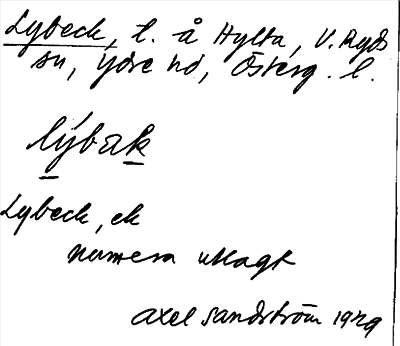 Lybeck, t. å Hylta, V. Ryds
sn, Ydre hd, Österg. l.
lýbæk
Lybeck, ek
numera utlagt
Axel Sandström 1929